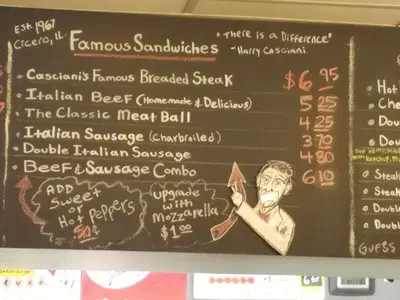 Est. 1967
Cicero, IL.
Famous Sandwiches
"There is a Difference"
-Harry Casciani
• Casciani's Famous Breaded Steak $6.95
• Italian Beef (Homemade & Delicious) 5.25
• The Classic Meat Ball 4.25
• Italian Sausage (Charbroiled) 3.70
• Double Italian Sausage 4.80
• Beef & Sausage Combo 6.10
ADD
Sweet
or
Hot Peppers
50¢
Upgrade
with
Mozzarella
$1.00
• Hot
• Che
• Dou
• Dou
• Steak
• Steak
• Double
• Double
Guess